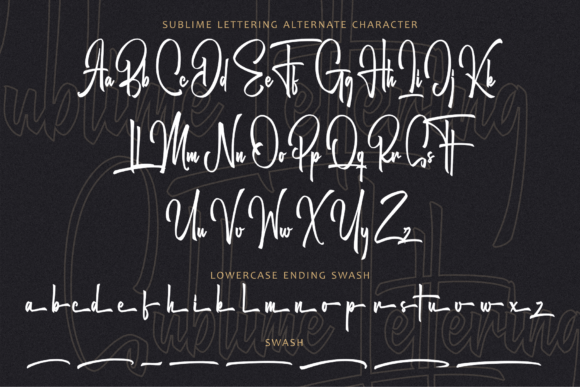 SUBLIME LETTERING ALTERNATE CHARACTER
Aa Bb Cc Dd Ee Ff Gg Hh Ii Jj Kk
Ll Mm Nn Oo Pp Qq Rr Ss Tt
Uu Vv Ww X Yy Zz
LOWERCASE ENDING SWASH
a b c d e f g h i j k l m n o p q r s t u v w x z
SWASH
Sublime Lettering
Sublime Lettering